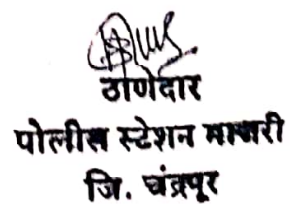 ठाणेदार
पोलीस स्टेशन माजरी
जि. चंद्रपूर